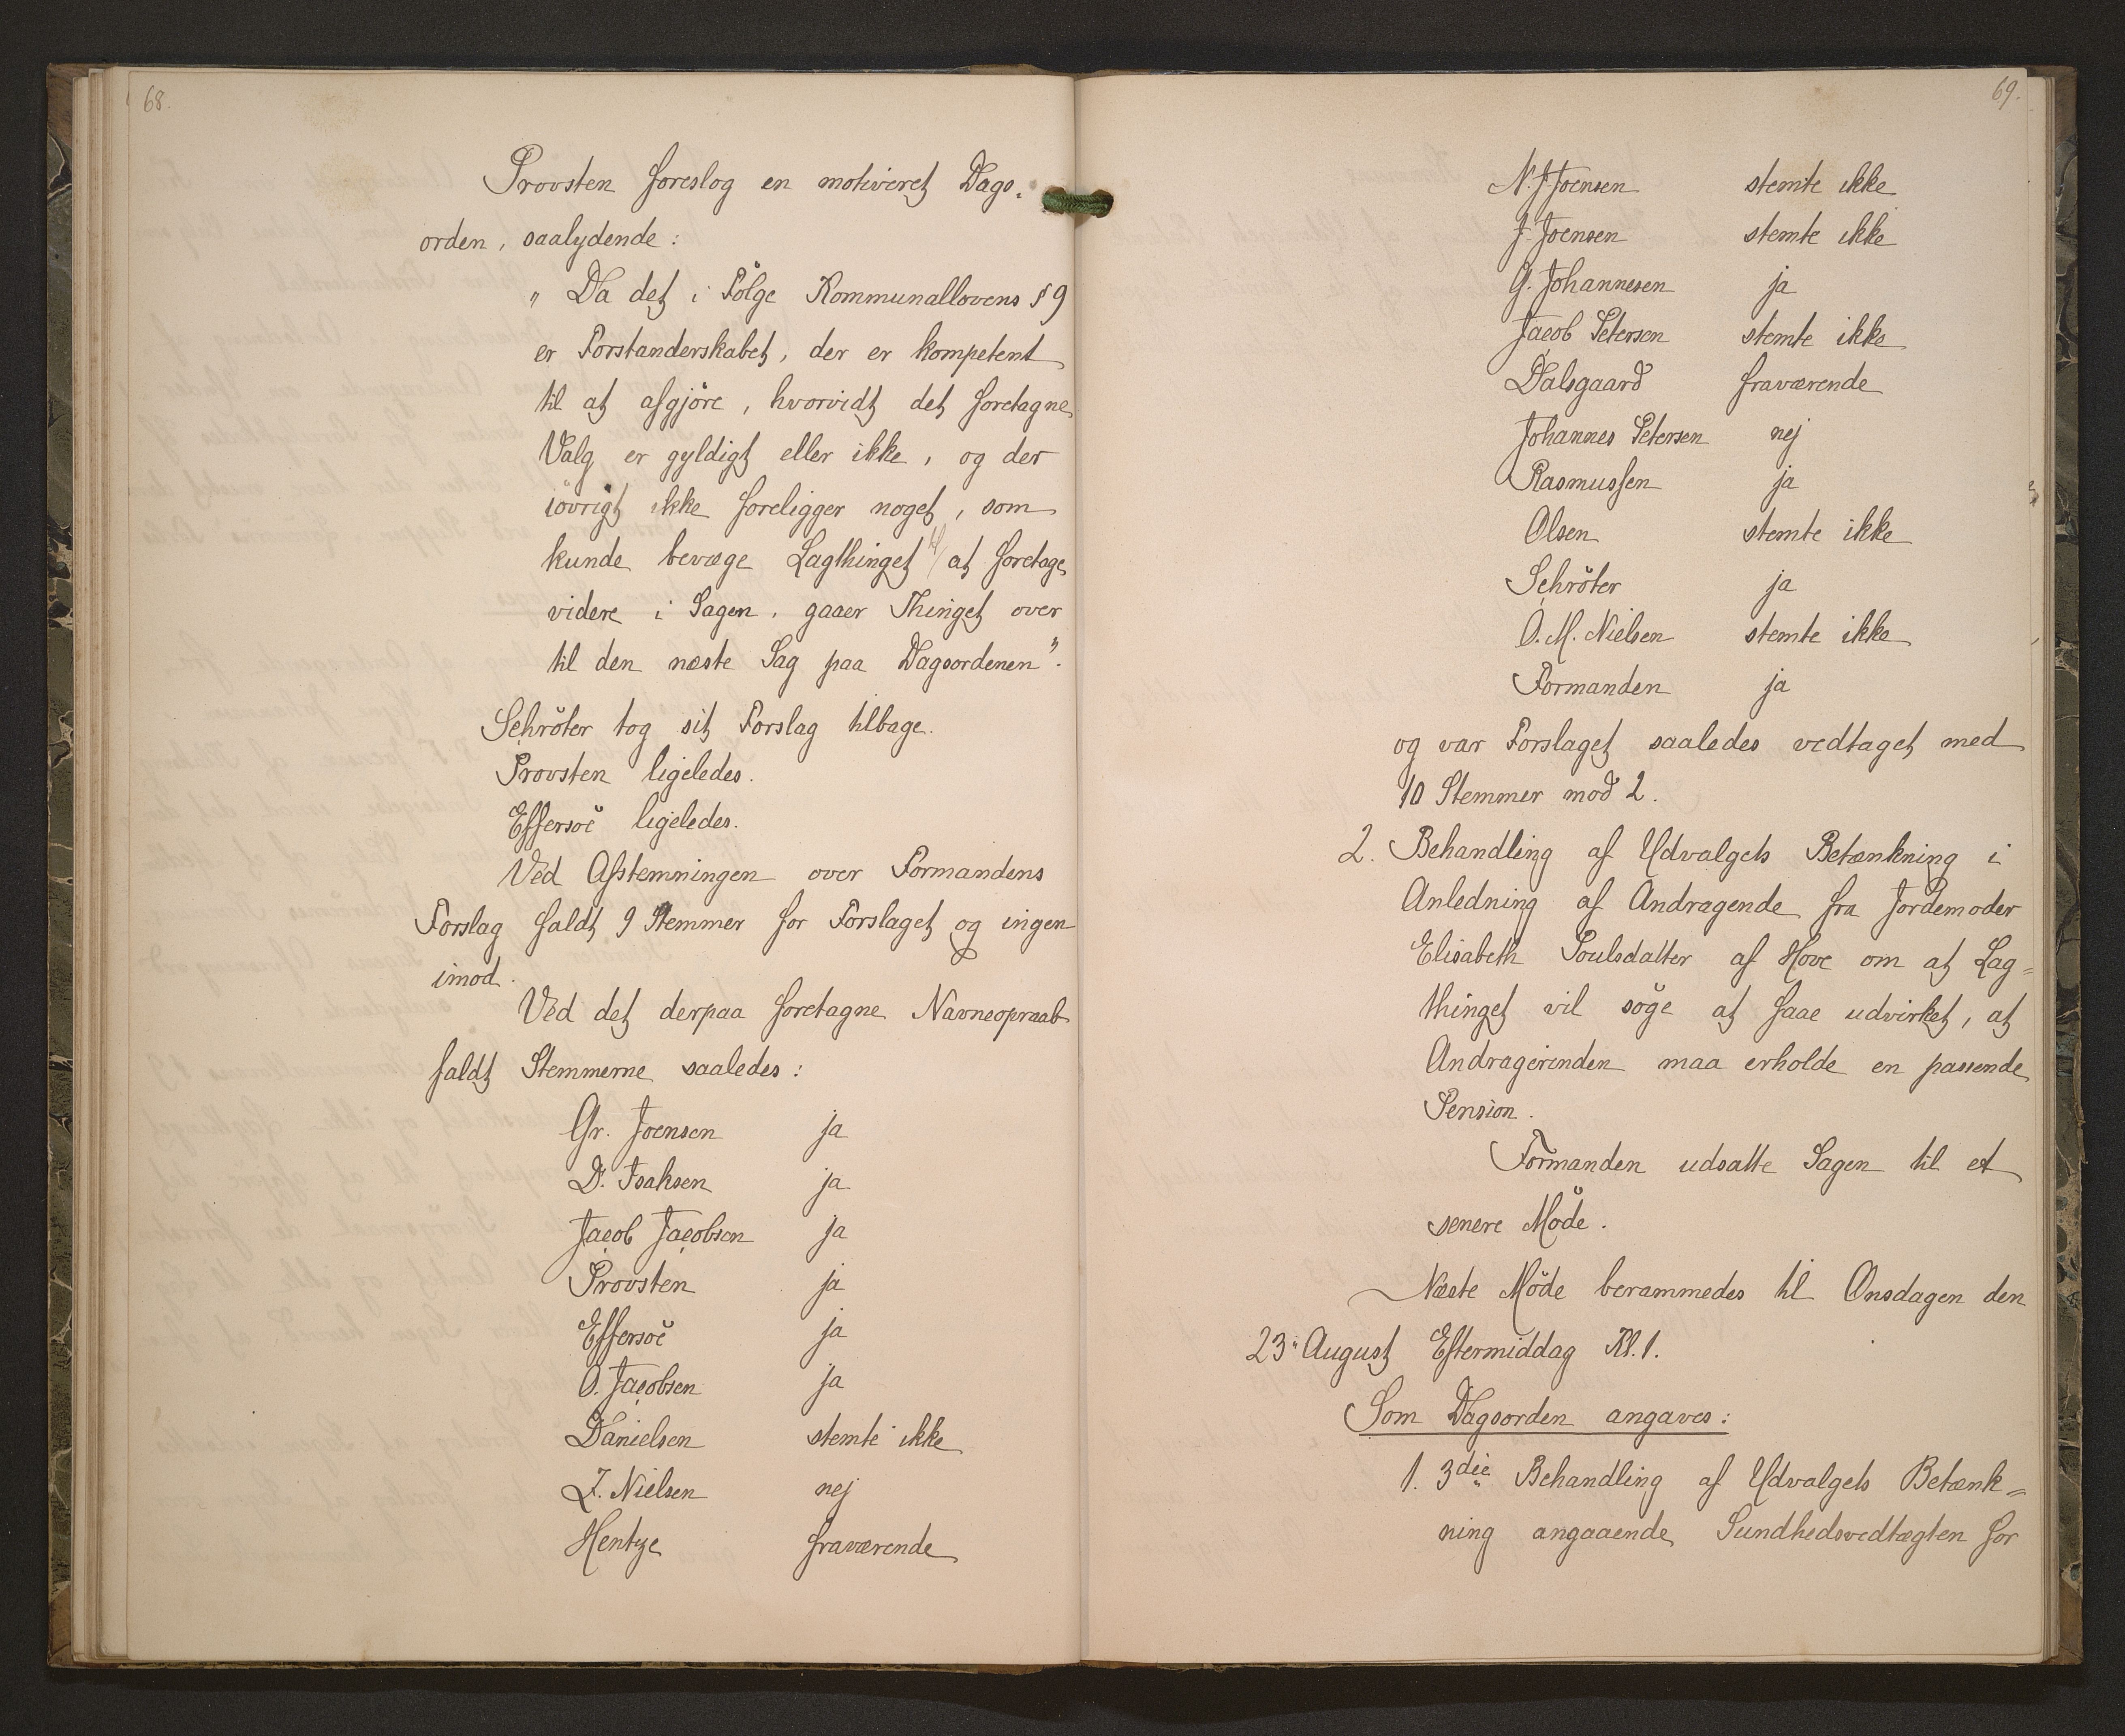 68.
Provsten foreslog en motiveret Dags-
orden, saalydende:
„Da det i Følge Kommunallovens § 9
er Forstanderskabet, der er kompetent
til at afgjöre, hvorvidt det foretagne
Valg er gyldigt eller ikke, og der
iövrigt ikke foreligger noget, som
kunde bevæge Lagthinget til at foretage
videre i Sagen, gaaer Thinget over
til den næste Sag paa Dagsordenen".
Schröter tog sit Forslag tilbage.
Provsten ligeledes.
Effersöe ligeledes.
Ved Afstemningen over Formandens
Forslag faldt 9 Stemmer for Forslaget og ingen
imod.
Ved det derpaa foretagne Navneopraab
faldt Stemmerne saaledes:
Gr. Joensen ja
D. Isaksen ja
Jacob Jacobsen ja
Provsten ja
Effersöe ja
O. Jacobsen ja
Danielsen stemte ikke
Z. Nielsen nej
Hentze fraværende
69.
N. J. Joensen stemte ikke
J. Joensen stemte ikke
G. Johannesen ja
Jacob Petersen stemte ikke
Dalsgaard fraværende
Johannes Petersen nej
Rasmussen ja
Olsen stemte ikke
Schröter ja
O. M. Nielsen stemte ikke
Formanden ja
og var Forslaget saaledes vedtaget med
10 Stemmer mod 2.
2. Behandling af Udvalgets Betænkning i
Anledning af Andragende fra Jordemoder
Elisabeth Poulsdatter af Hove om at Lag=
thinget vil söge at faae udvirket, at
Andragerinden maa erholde en passende
Pension.
Formanden udsatte Sagen til et
senere Möde.
Næste Möde berammedes til Onsdagen den
23" August Eftermiddag Kl. 1.
Som Dagsorden angaves:
1. 3die Behandling af Udvalgets Betænk=
ning angaaende Sundhedsvedtægten for